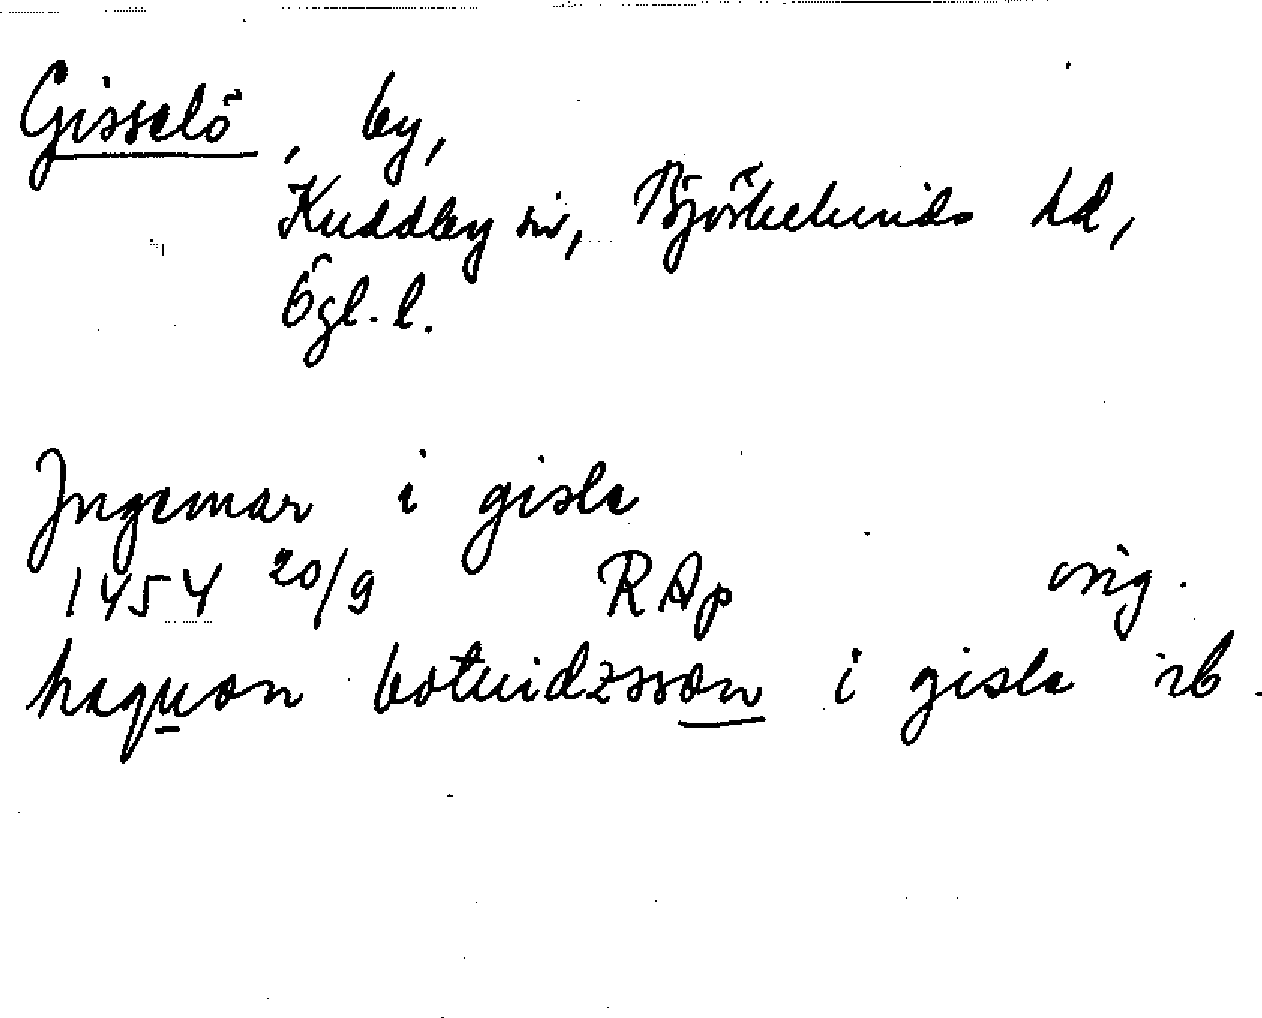 Gisselö, by,
Kuddby sn, Björkekinds hd,
Ögl. l.
Ingemar i gisle
1454 20/9 RAp orig.
haquon botuidzsson i gisle ib.